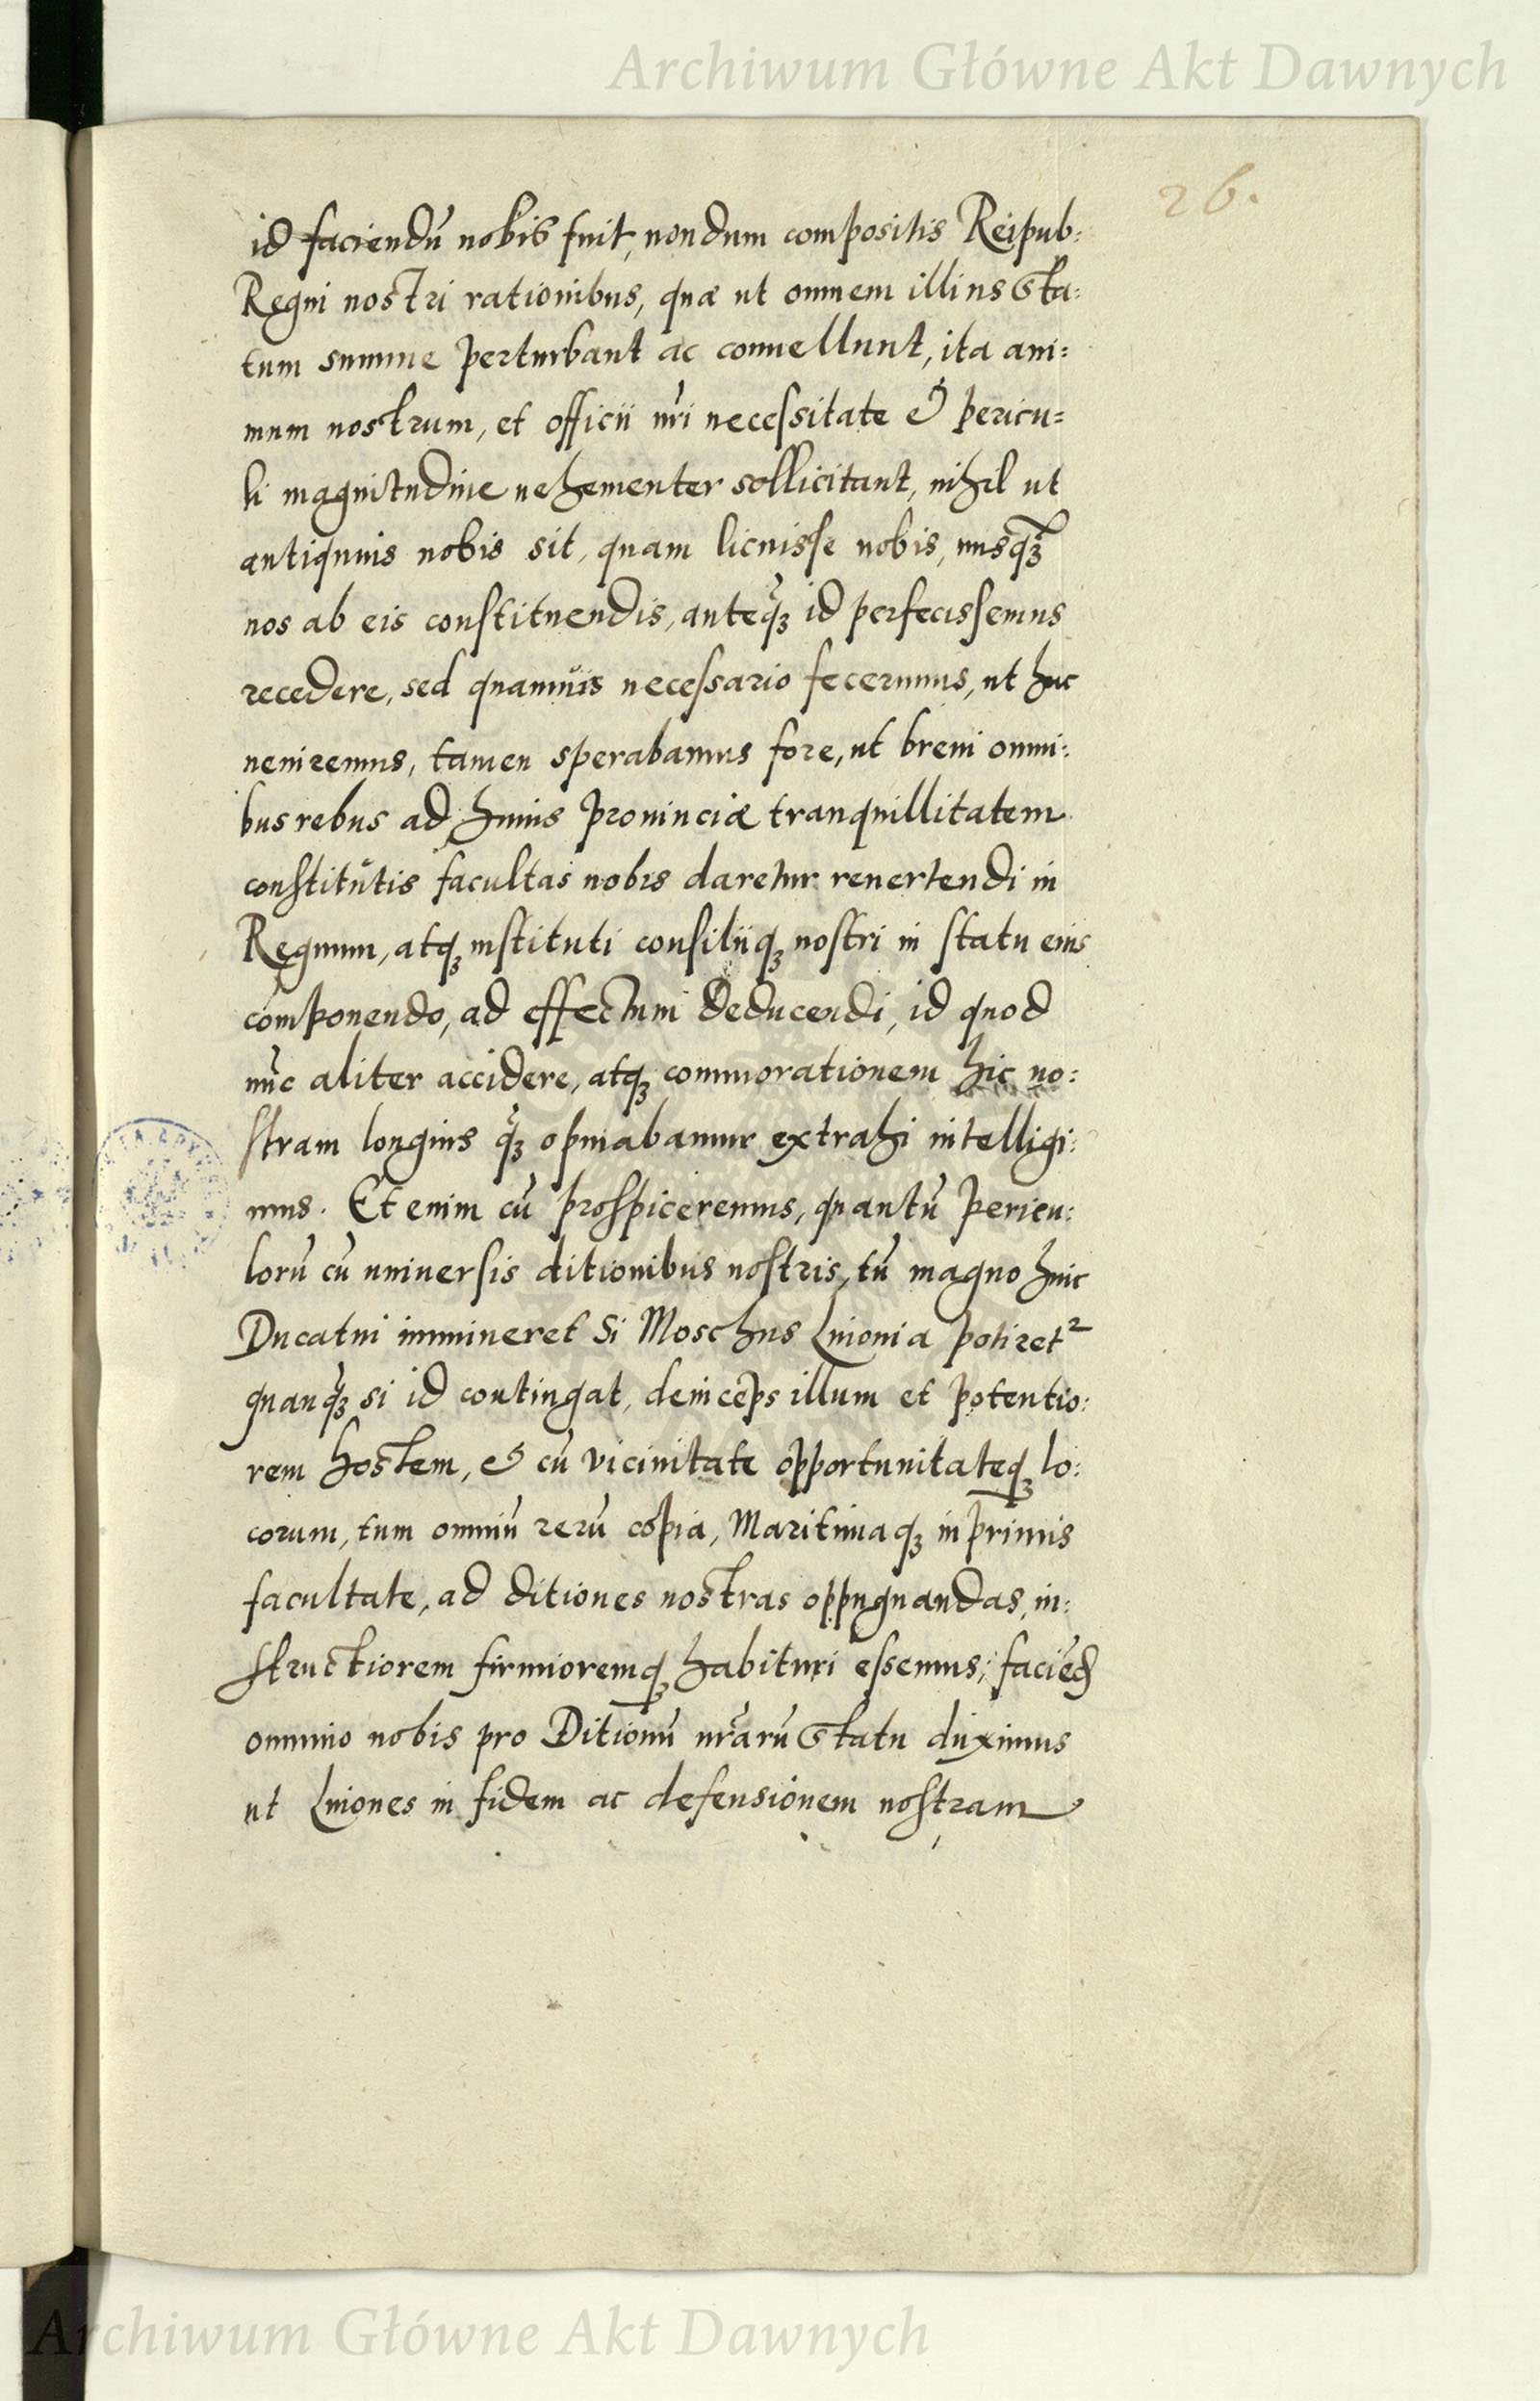 Archiwum Główne Akt Dawnych
26.
id faciendū nobis fuit, nondum compositis Reipub:
Regni nostri rationibus, quæ ut omnem illius sta:
tum summe perturbant ac conuellunt, ita ani=
mum nostrum, et officii nr̃i necessitate et pericu=
li magnitudine uehementer sollicitant, nihil ut
antiquius nobis sit, quam licuisse nobis, nusqꝫ̃
nos ab eis constituendis, anteqꝫ̃ id perfecissemus
recedere, sed quamuis necessario fecerimus, ut huc
ueniremus, tamen sperabamus fore, ut breui omni:
bus rebus ad huius prouinciæ tranquillitatem
constitutis facultas nobis daretur reuertendi in
Regnum, atqꝫ instituti consiliiqꝫ nostri in statu eius
componendo, ad effectum deducendi, id quod
nūc aliter accidere, atqꝫ commorationem hic no:
stram longius qꝫ̃ opinabamur extrahi intelligi:
mus. Etenim cū prospiceremus, quantū pericu:
lorū cū uniuersis ditionibus nostris, tū magno huic
Ducatui immineret si Moschus Liuonia potiret²
quanqꝫ̃ si id contingat, deinceps illum et potentio:
rem hostem, et cū vicinitate opportunitateqꝫ lo:
corum, tum omniū rerū copia, Maritimaqꝫ inprimis
facultate, ad ditiones nostras oppugnandas, in:
structiorem firmioremqꝫ habituri essemus; faciēd
omnino nobis pro Ditionū nr̃arū statu duximus
ut Liuones in fidem ac defensionem nostram
Archiwum Główne Akt Dawnych